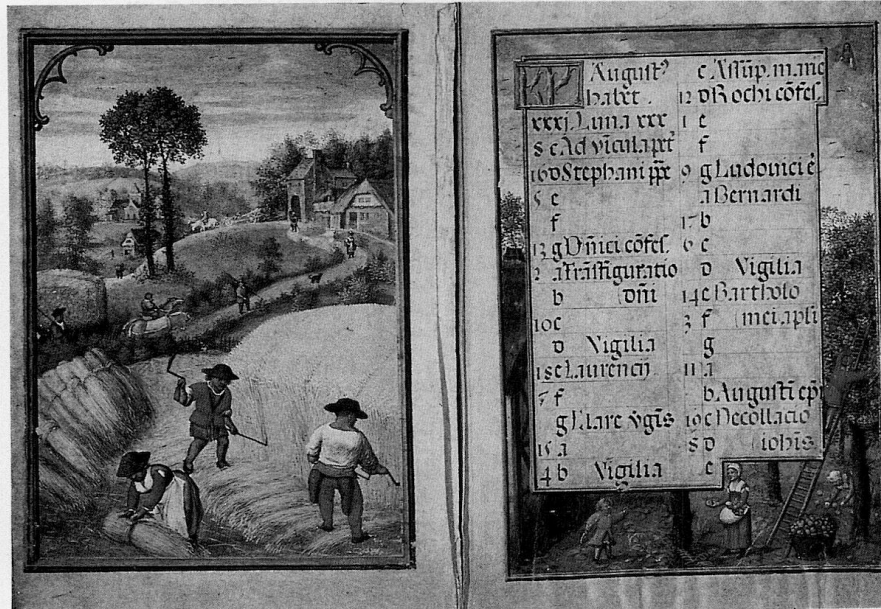 KL Augustꝰ
habet .
xxxj Luna xxx
8 c Ad vĩcula pet
16 d Stephani ppe
5 e
f
13 g Dñici cõfes.
2 a Trãsfiguratio
b (dñi
10 c
d Vigilia
18 e Laurencij
7 f
g Clare v̄gīs
15 a
4 b Vigilia
c Assũp. marie
12 d Rochi cõfes.
1 e
f
9 g Ludouici ẽ
a Bernardi
17 b
6 c
d Vigilia
14 e Bartholo
3 f (mei apli
g
11 a
b Augustĩ epi
19 c Decollacio
8 d iohis
e